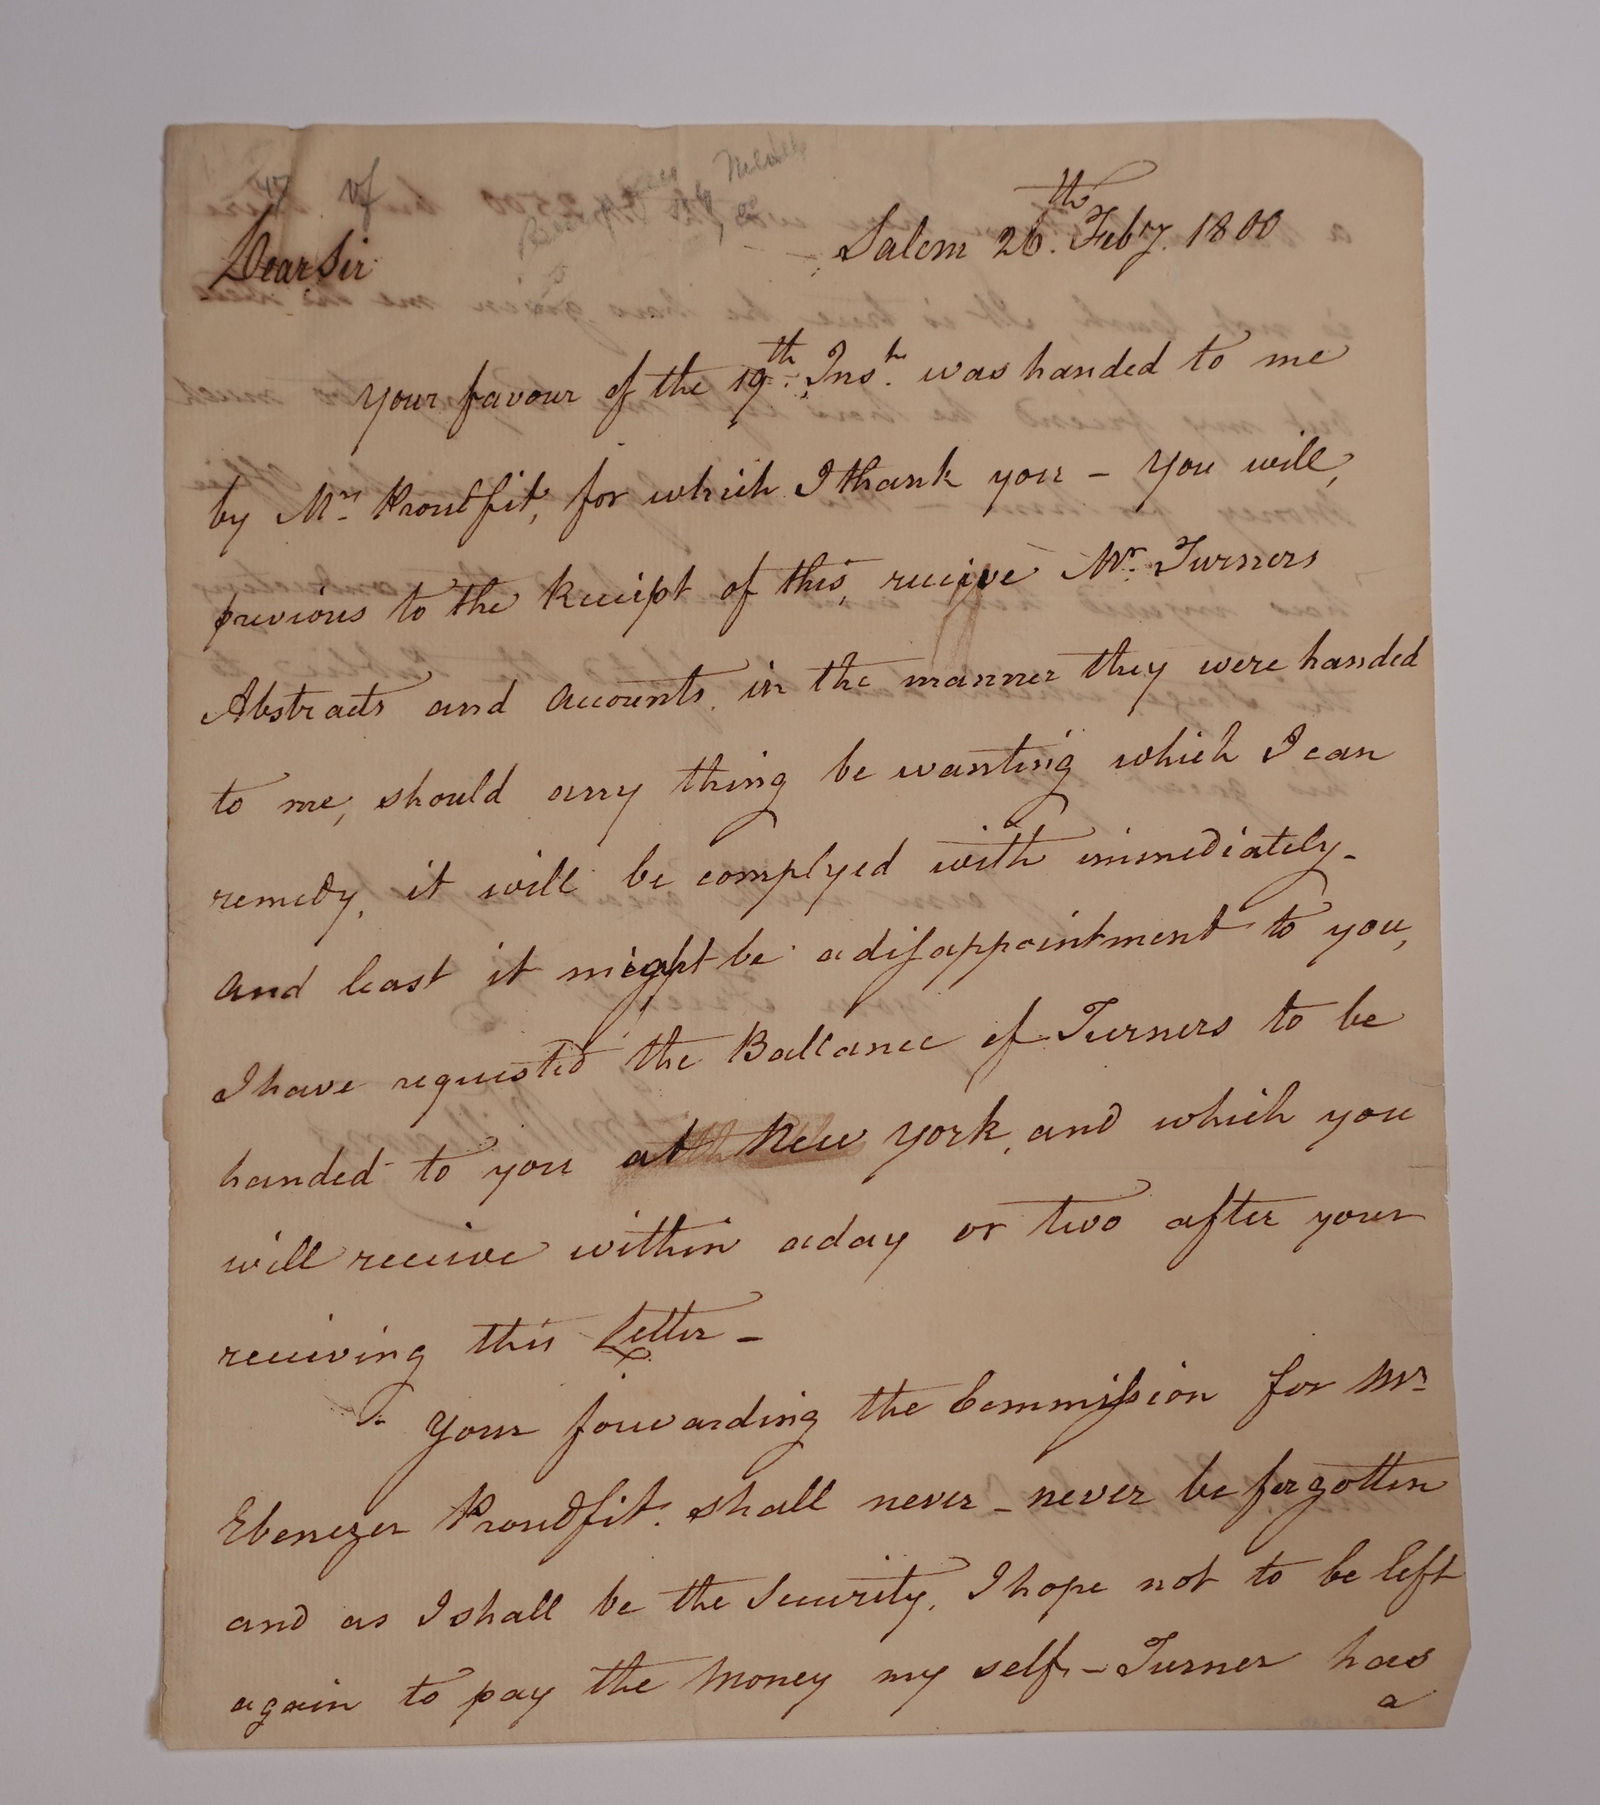 Salem 26.th Feby. 1800
Dear Sir
Your favour of the 19th. Inst. was handed to me
by Mr. Proudfit, for which I thank you – You will,
previous to the Receipt of this, receive Mr. Turners
Abstracts and Accounts, in the manner they were handed
to me, should any thing be wanting which I can
remedy, it will be complyed with immediately –
and least it might be a disappointment to you,
I have requested the Ballance of Turners to be
handed to you at New York, and which you
will receive within a day or two after your
receiving this Letter –
Your forwarding the Commission for Mr.
Ebenezer Proudfit. shall never – never be forgotten
and as I shall be the Security, I hope not to be left
again to pay the Money my self – Turner has
a